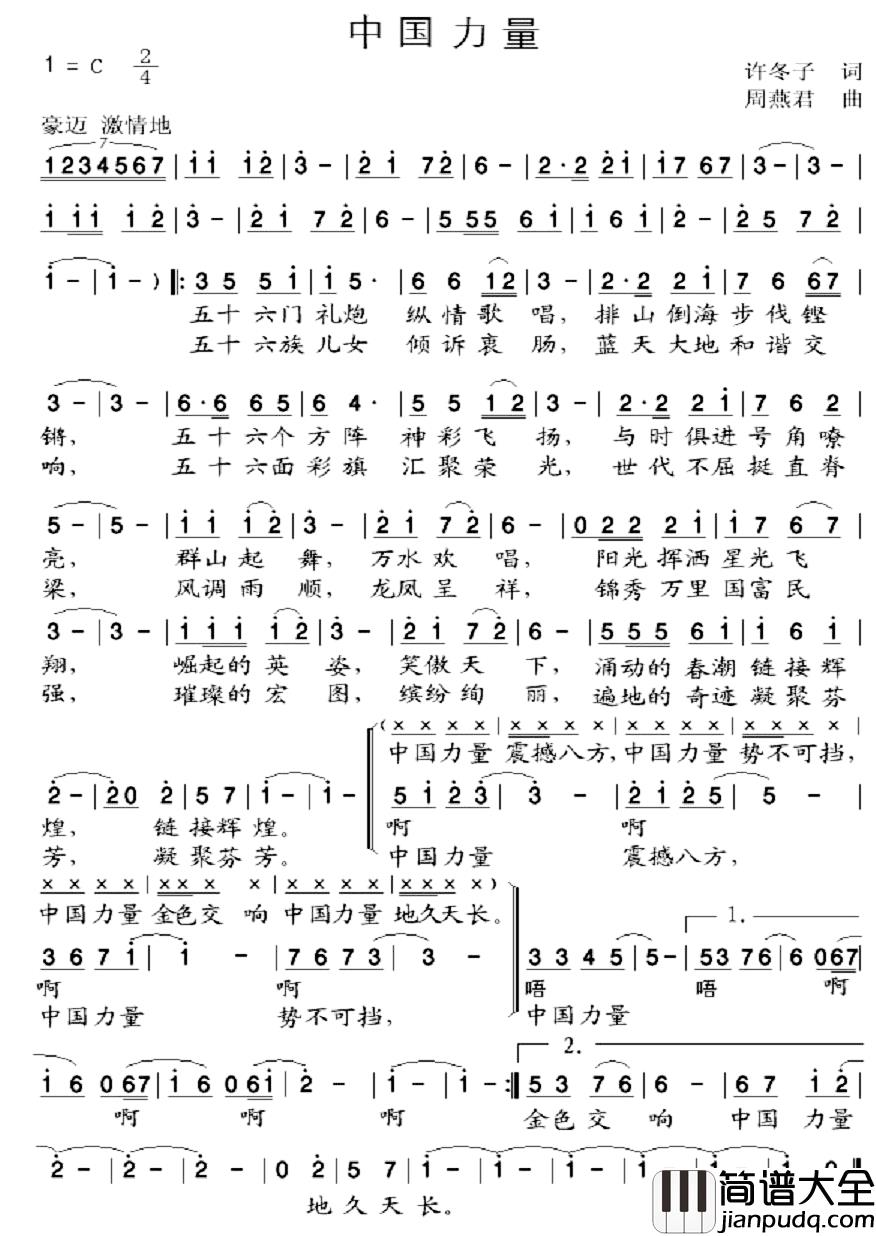 中国力量
1 = C 2/4
许冬子 词
周燕君 曲
豪迈 激情地
7
1234567 | i i i 2 | 3 - | 2 i 7 2 | 6 - | 2 · 2 2 i | i 7 6 7 | 3 - | 3 - |
i i i i 2 | 3 - | 2 i 7 2 | 6 - | 5 5 5 6 i | i 6 i | 2 - | 2 5 7 2 |
i - | i - ) ‖: 3 5 5 i | i 5 · | 6 6 i 2 | 3 - | 2 · 2 2 i | 7 6 6 7 |
五十六门礼炮 纵情歌 唱, 排山倒海步伐铿
五十六族儿女 倾诉衷 肠, 蓝天大地和谐交
3 - | 3 - | 6 · 6 6 5 | 6 4 · | 5 5 1 2 | 3 - | 2 · 2 2 i | 7 6 2 |
锵, 五十六个方阵 神彩飞 扬, 与时俱进号角嘹
响, 五十六面彩旗 汇聚荣 光, 世代不屈挺直脊
5 - | 5 - | i i i 2 | 3 - | 2 i 7 2 | 6 - | 0 2 2 2 i | i 7 6 7 |
亮, 群山起 舞, 万水欢 唱, 阳光挥洒星光飞
梁, 风调雨 顺, 龙凤呈 祥, 锦秀万里国富民
3 - | 3 - | i i i i 2 | 3 - | 2 i 7 2 | 6 - | 5 5 5 6 i | i 6 i |
翔, 崛起的英 姿, 笑傲天 下, 涌动的春潮链接辉
强, 璀璨的宏 图, 缤纷绚 丽, 遍地的奇迹凝聚芬
( × × × × | × × × × | × × × × | × × × × |
中国力量 震撼八方, 中国力量 势不可挡,
2 - | 2 0 2 | 5 7 | i - | i - 5 i 2 3 | 3 - | 2 i 2 5 | 5 - |
煌, 链接辉煌。 啊 啊
芳, 凝聚芬芳。 中国力量 震撼八方,
× × × × | × × × × | × × × × | × × × × )
中国力量 金色交 响 中国力量 地久天长。
1.
3 6 7 i | i - | 7 6 7 3 | 3 - 3 3 4 5 | 5 - | 5 3 7 6 | 6 0 6 7 |
啊 啊 唔 唔 啊
中国力量 势不可挡, 中国力量
2.
i 6 0 6 7 | i 6 0 6 i | 2 - | i - | i - :‖ 5 3 7 6 | 6 - | 6 7 i 2 |
啊 啊 啊 金色交 响 中国 力量
2 - | 2 - | 2 - | 0 2 | 5 7 | i - | i - | i - | i - | i 0 0 ‖
地久天长。
简谱大全
jianpudq.com